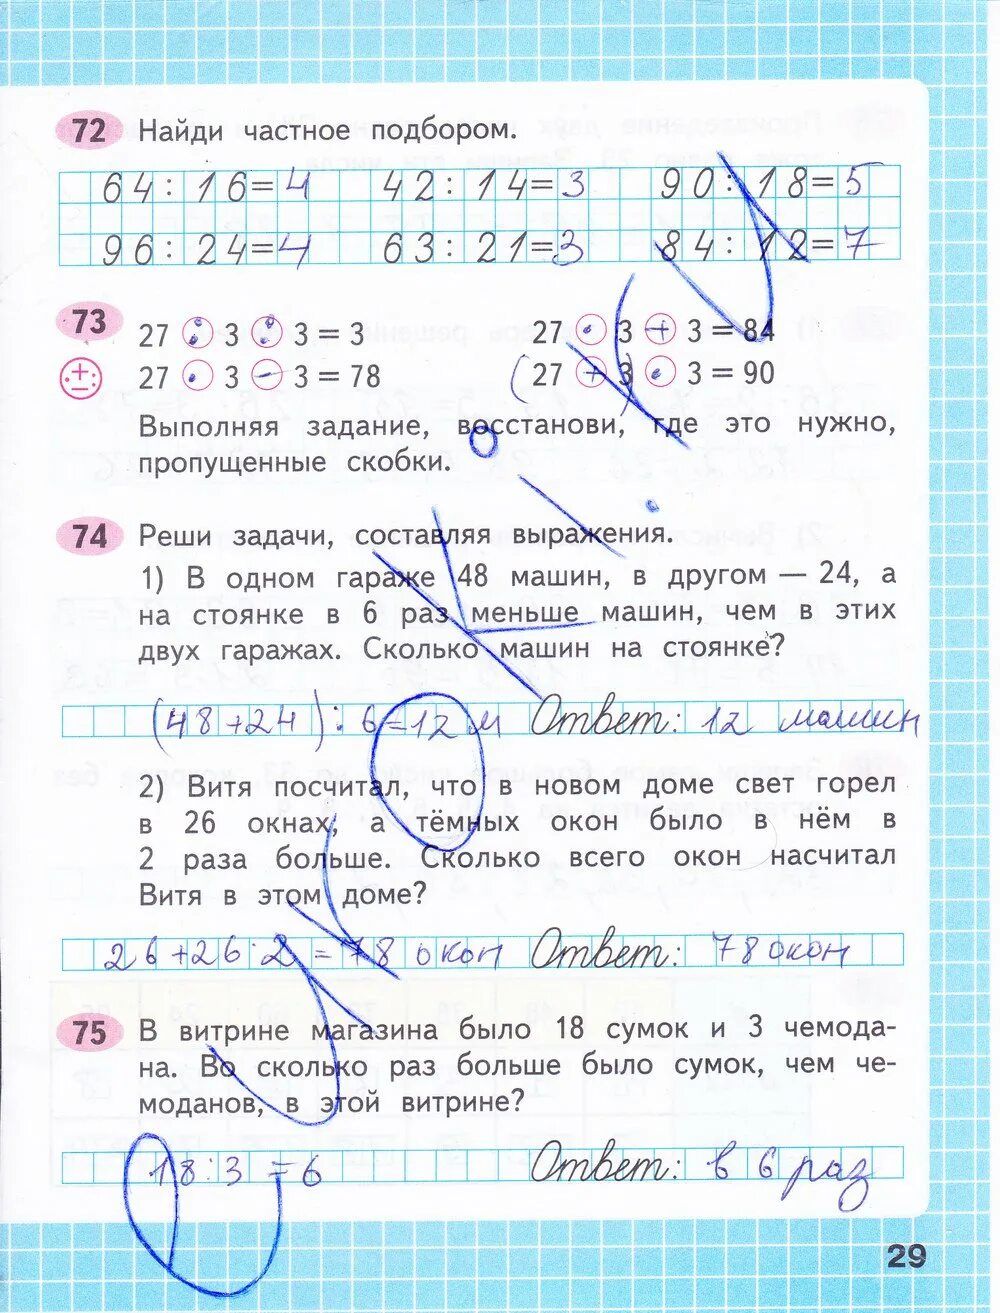 72 Найди частное подбором.
64 : 16 = 4 42 : 14 = 3 90 : 18 = 5
96 : 24 = 4 63 : 21 = 3 84 : 12 = 7
73 27 : 3 : 3 = 3 27 · 3 + 3 = 84
27 · 3 − 3 = 78 (27 + 3) · 3 = 90
Выполняя задание, восстанови, где это нужно,
пропущенные скобки.
74 Реши задачи, составляя выражения.
1) В одном гараже 48 машин, в другом — 24, а
на стоянке в 6 раз меньше машин, чем в этих
двух гаражах. Сколько машин на стоянке?
(48+24) : 6 = 12 м Ответ: 12 машин
2) Витя посчитал, что в новом доме свет горел
в 26 окнах, а тёмных окон было в нём в
2 раза больше. Сколько всего окон насчитал
Витя в этом доме?
26+26·2 = 78 окон Ответ: 78 окон
75 В витрине магазина было 18 сумок и 3 чемода-
на. Во сколько раз больше было сумок, чем че-
моданов, в этой витрине?
18 : 3 = 6 Ответ: в 6 раз
29